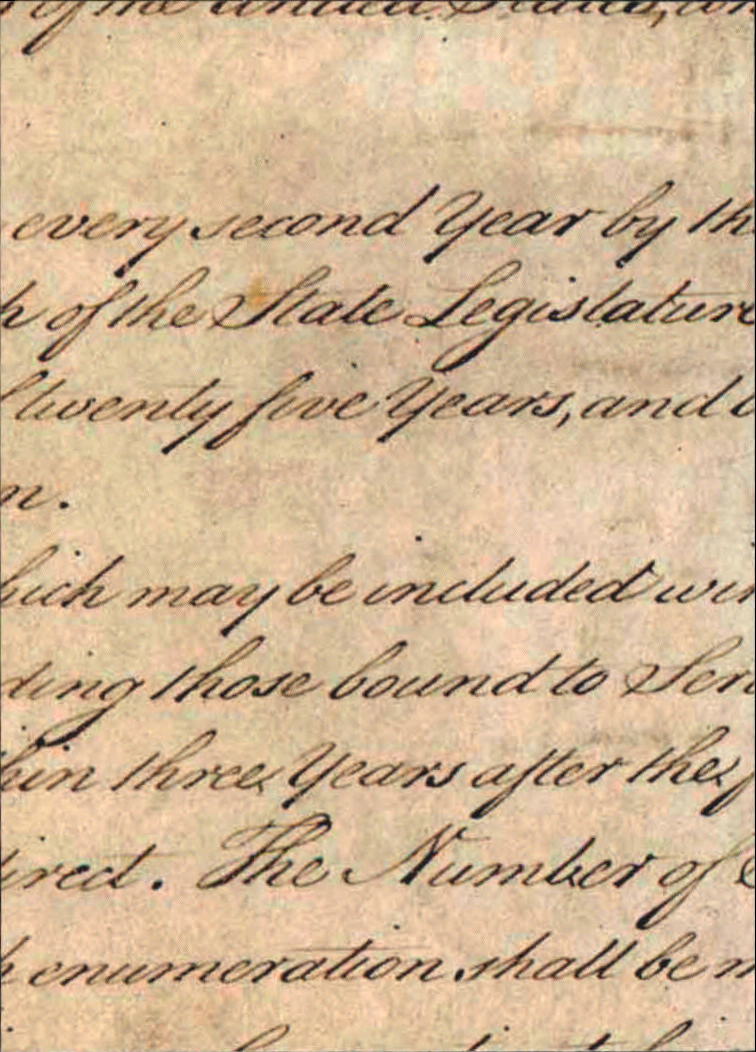 of the United States,
every second Year by the
h of the State Legislature
twenty five Years, and
n.
hich may be included wi
ding those bound to Ser
hin three Years after the
irect. The Number of
h enumeration shall be m